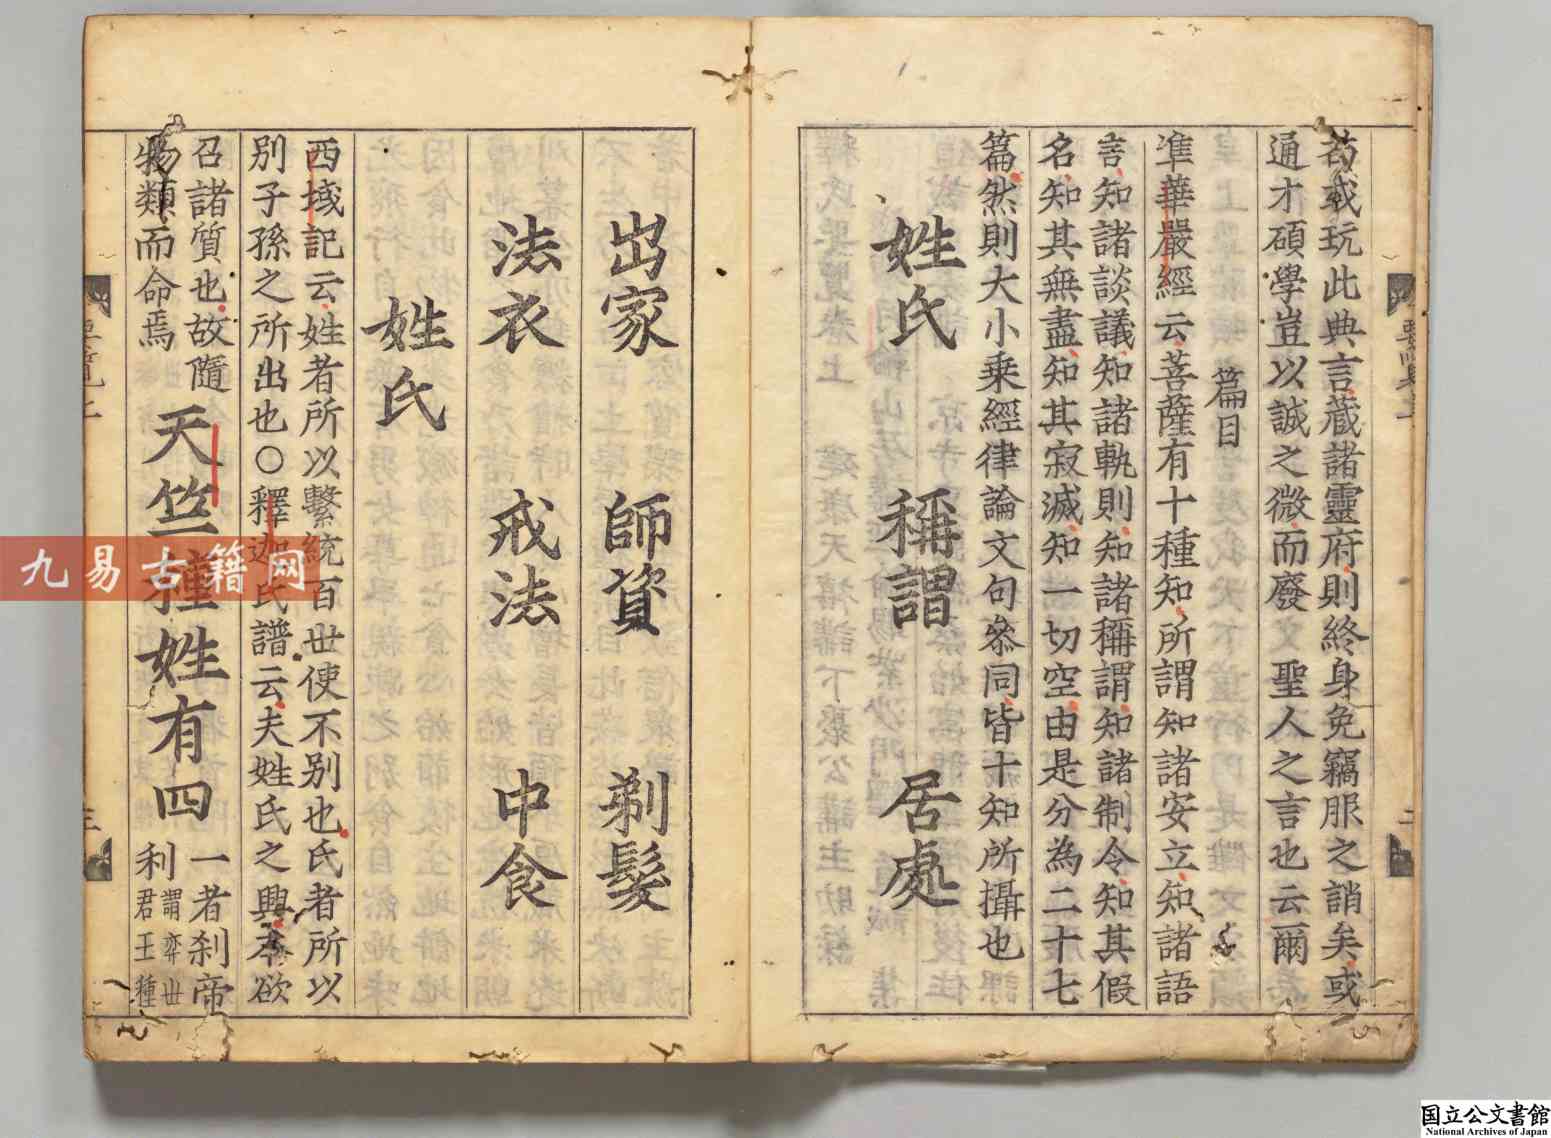 苟或玩此典言藏諸靈府則終身免竊服之誚矣或
通才碩學豈以誠之微而廢 聖人之言也云爾
篇目
準華嚴經云菩薩有十種知所謂知諸安立知諸語
言知諸談議知諸軌則知諸稱謂知諸制令知其假
名知其無盡知其寂滅知一切空由是分為二十七
篇然則大小乘經律論文句叅同皆十知所攝也
姓氏 稱謂 居處
出家 師資 剃髮
法衣 戒法 中食
姓氏
西域記云姓者所以繫統百世使不別也氏者所以
別子孫之所出也○釋迦氏譜云夫姓氏之興本欲
召諸質也故隨
物類而命焉
天竺種姓有四
一者刹帝
利
謂弈世
君王種
要覽上
二
要覽上
三
九易古籍网
国立公文書館
National Archives of Japan